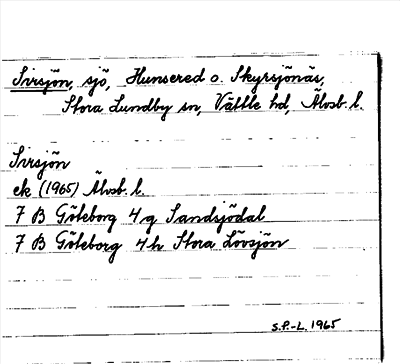 Sirsjön, sjö, Hunsered o. Skyrsjönäs,
Stora Lundby sn, Vättle hd, Älvsb. l.
Sirsjön
ek (1965) Älvsb. l.
7 B Göteborg 4g Sandsjödal
7 B Göteborg 4h Stora Lövsjön
S.P.-L. 1965